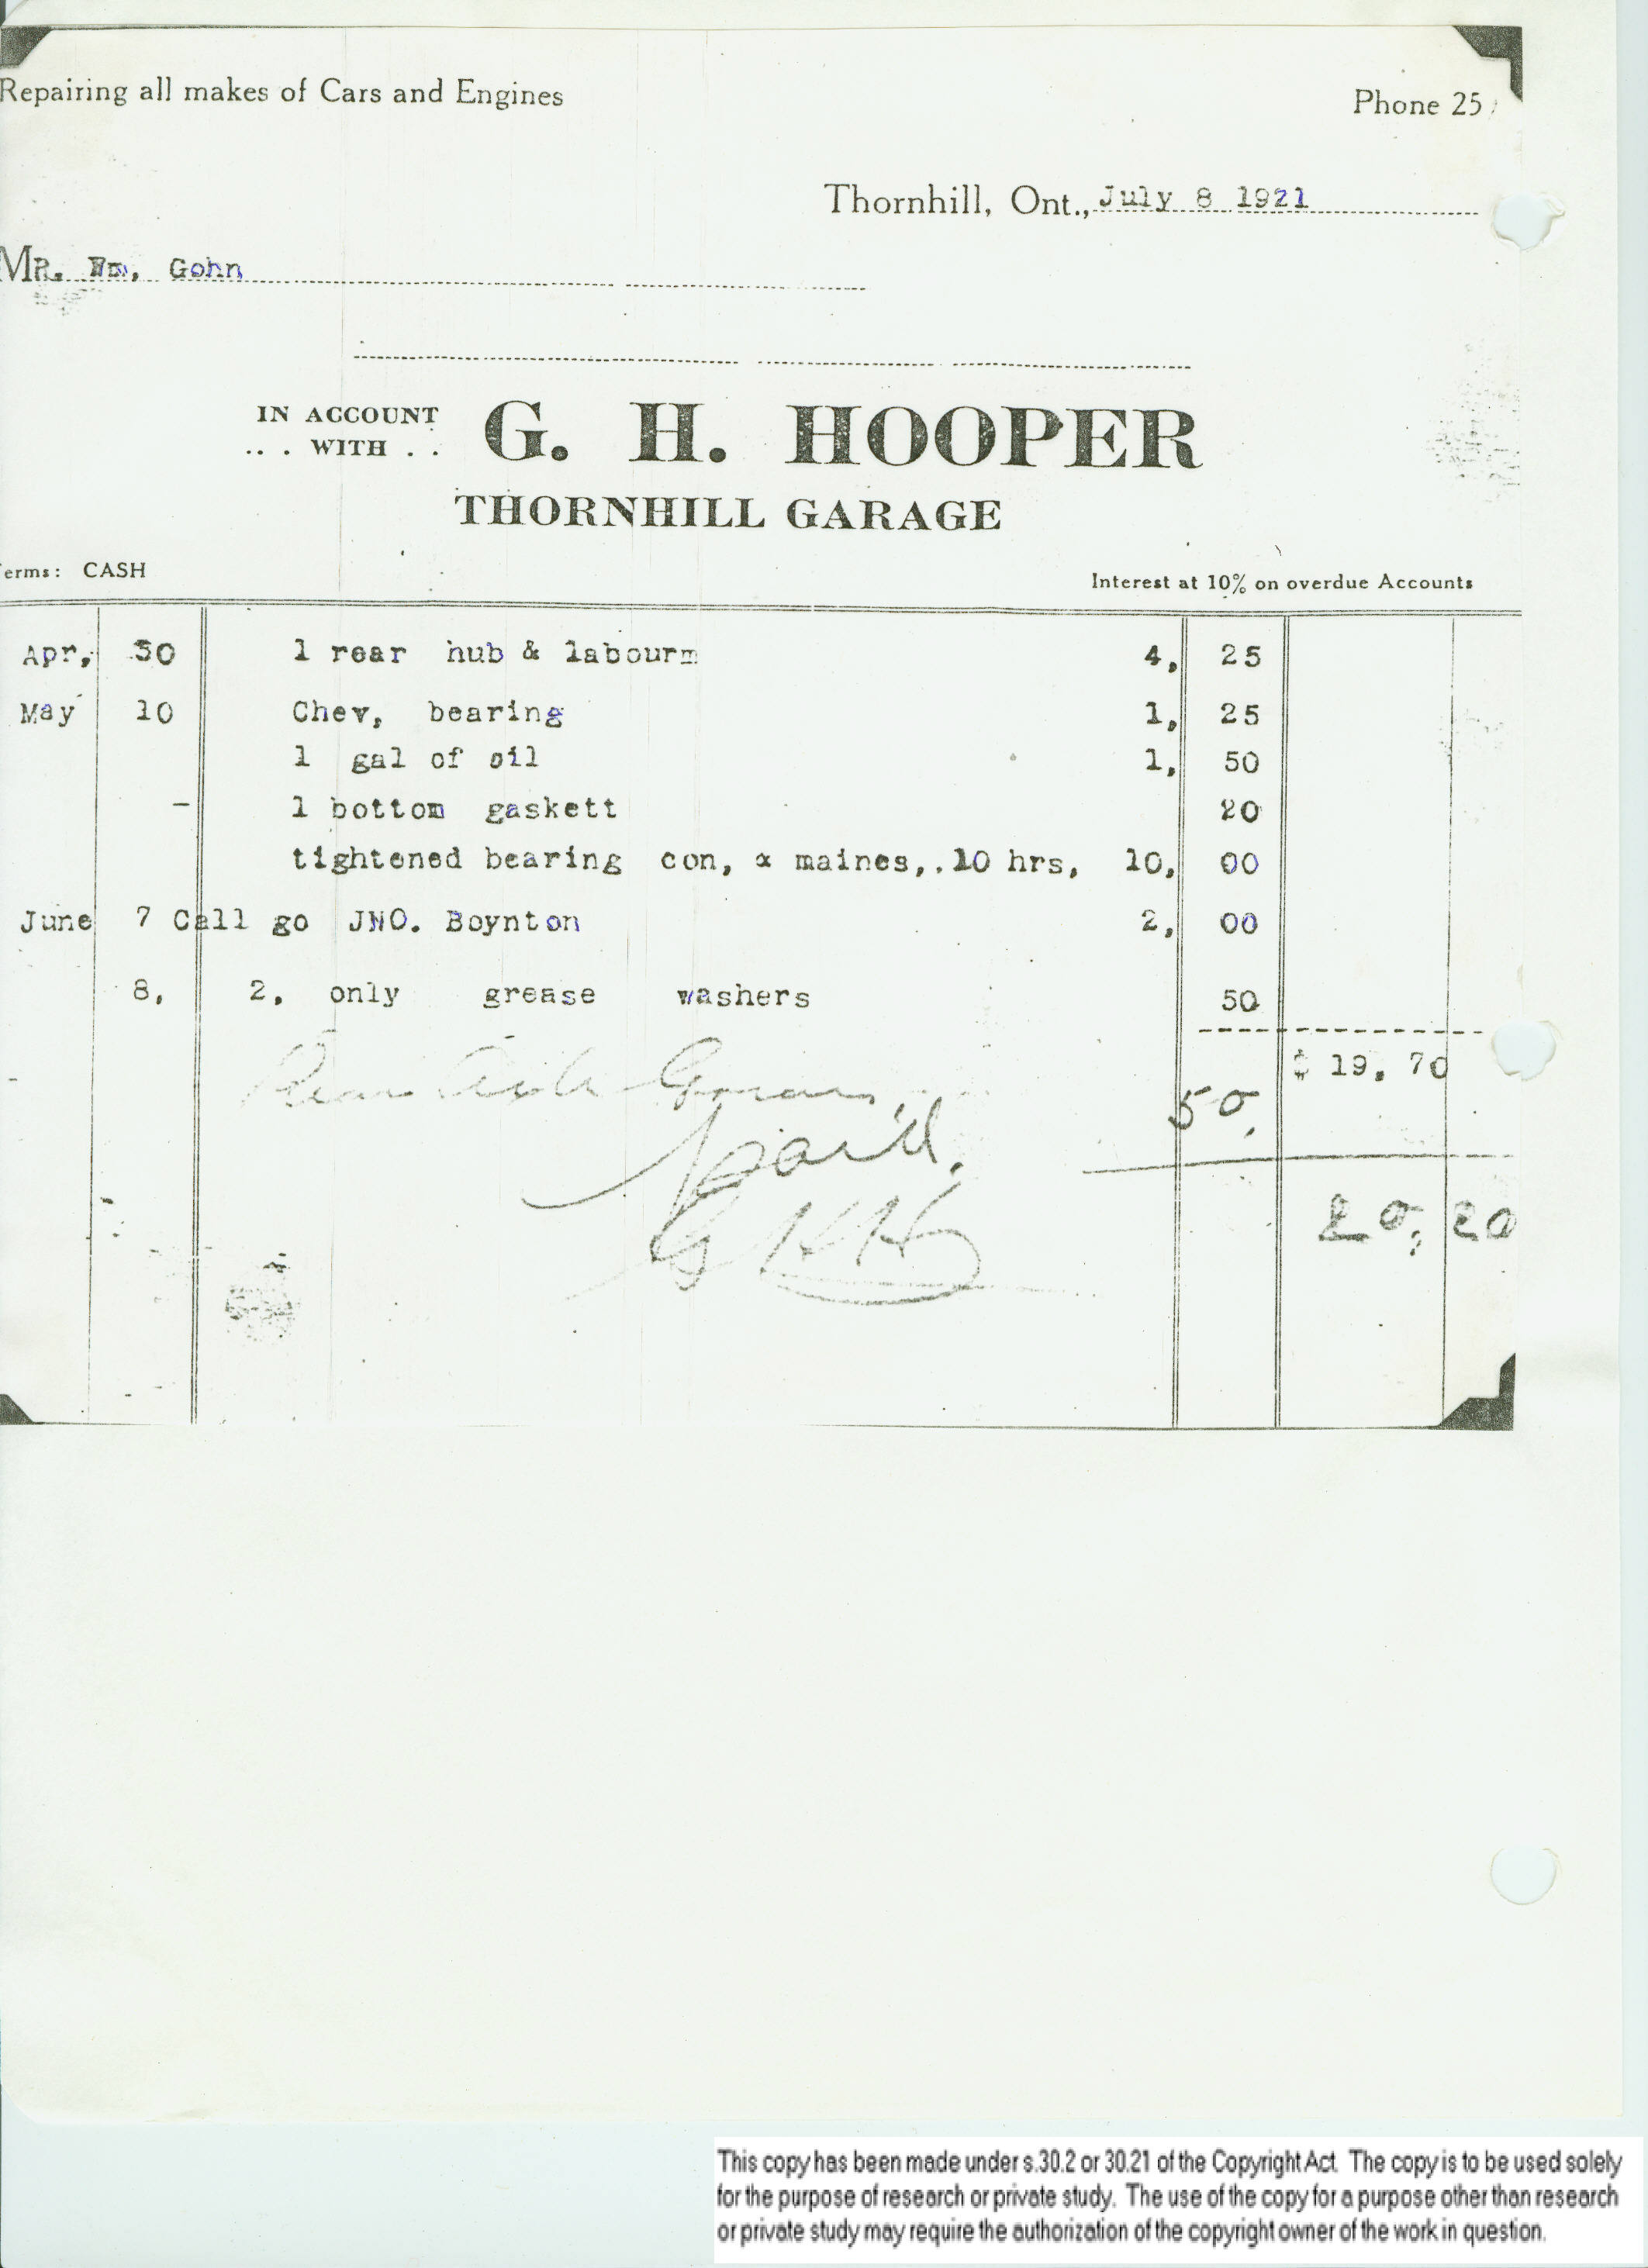 Repairing all makes of Cars and Engines Phone 25
Thornhill, Ont., July 8 1921
MR. Wm, Gohn
IN ACCOUNT
.. . WITH . .
G. H. HOOPER
THORNHILL GARAGE
erms: CASH Interest at 10% on overdue Accounts
Apr, 30 1 rear hub & labourm 4, 25
May 10 Chev, bearing 1, 25
1 gal of oil 1, 50
- 1 bottom gaskett 20
tightened bearing con, & maines,.10 hrs, 10, 00
June 7 Call go JNO. Boynton 2, 00
8, 2, only grease washers 50
$ 19, 70
Rear Axle 50.
Paid.
G H H
20, 20
This copy has been made under s.30.2 or 30.21 of the Copyright Act. The copy is to be used solely
for the purpose of research or private study. The use of the copy for a purpose other than research
or private study may require the authorization of the copyright owner of the work in question.